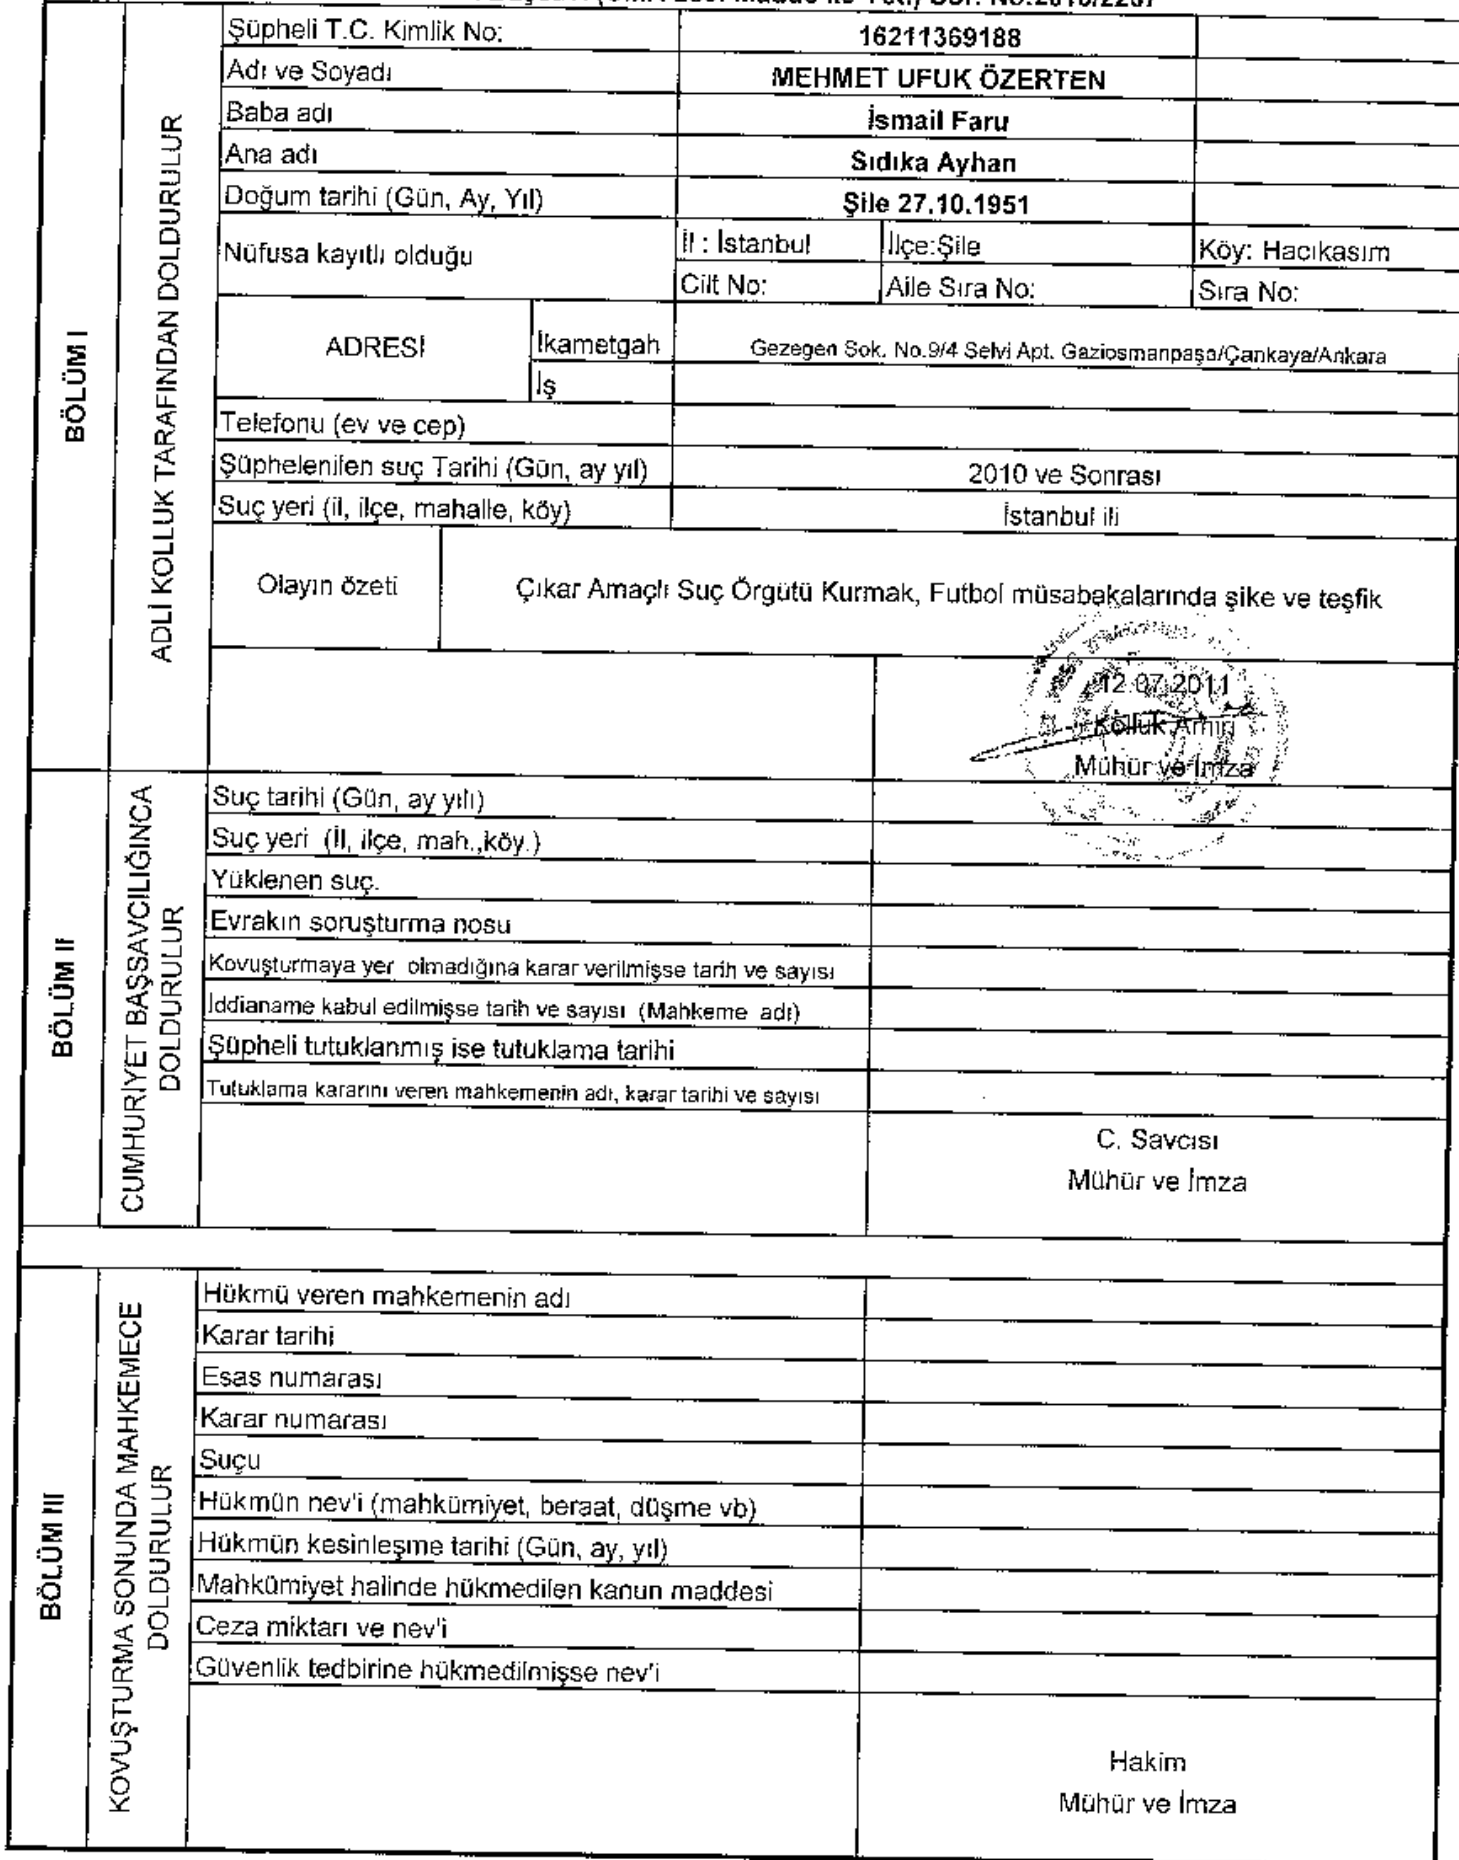 Şüpheli T.C. Kimlik No: 16211369188
Adı ve Soyadı MEHMET UFUK ÖZERTEN
Baba adı İsmail Faru
Ana adı Sıdıka Ayhan
Doğum tarihi (Gün, Ay, Yıl) Şile 27.10.1951
Nüfusa kayıtlı olduğu
İl : İstanbul İlçe:Şile Köy: Hacıkasım
Cilt No: Aile Sıra No: Sıra No:
ADRESİ
İkametgah Gezegen Sok. No.9/4 Selvi Apt. Gaziosmanpaşa/Çankaya/Ankara
İş
Telefonu (ev ve cep)
Şüphelenilen suç Tarihi (Gün, ay yıl) 2010 ve Sonrası
Suç yeri (il, ilçe, mahalle, köy) İstanbul ili
Olayın özeti Çıkar Amaçlı Suç Örgütü Kurmak, Futbol müsabakalarında şike ve teşfik
12.07.2011
Kolluk Amiri
Mühür ve İmza
BÖLÜM I
ADLİ KOLLUK TARAFINDAN DOLDURULUR
Suç tarihi (Gün, ay yılı)
Suç yeri (İl, ilçe, mah.,köy.)
Yüklenen suç.
Evrakın soruşturma nosu
Kovuşturmaya yer olmadığına karar verilmişse tarih ve sayısı
İddianame kabul edilmişse tarih ve sayısı (Mahkeme adı)
Şüpheli tutuklanmış ise tutuklama tarihi
Tutuklama kararını veren mahkemenin adı, karar tarihi ve sayısı
C. Savcısı
Mühür ve İmza
BÖLÜM II
CUMHURİYET BAŞSAVCILIĞINCA
DOLDURULUR
Hükmü veren mahkemenin adı
Karar tarihi
Esas numarası
Karar numarası
Suçu
Hükmün nev'i (mahkümiyet, beraat, düşme vb)
Hükmün kesinleşme tarihi (Gün, ay, yıl)
Mahkümiyet halinde hükmedilen kanun maddesi
Ceza miktarı ve nev'i
Güvenlik tedbirine hükmedilmişse nev'i
Hakim
Mühür ve İmza
BÖLÜM III
KOVUŞTURMA SONUNDA MAHKEMECE
DOLDURULUR